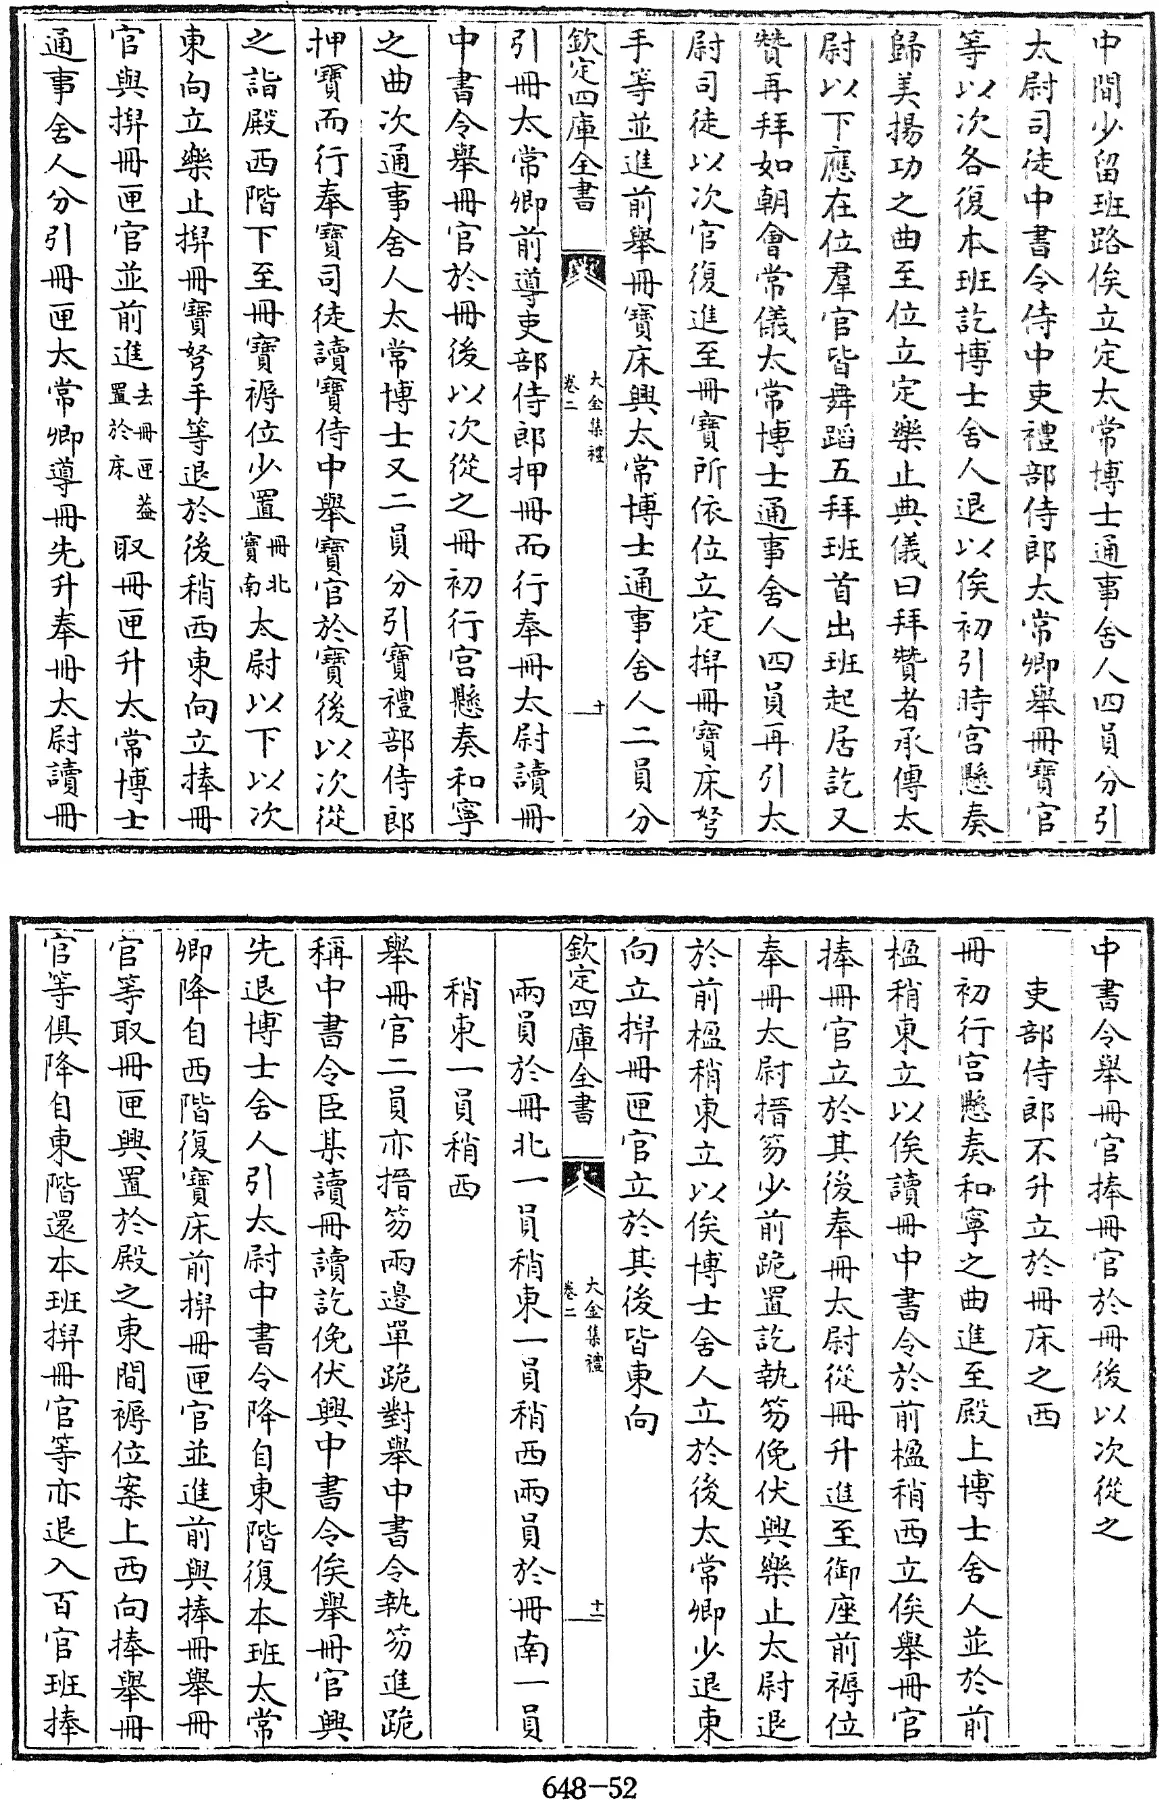 中間少留班路俟立定太常博士通事舍人四員分引
太尉司徒中書令侍中吏禮部侍郎太常卿舉冊寶官
等以次各復本班訖博士舍人退以俟初引時宮懸奏
歸美揚功之曲至位立定樂止典儀曰拜贊者承傳太
尉以下應在位羣官皆舞蹈五拜班首出班起居訖又
贊再拜如朝會常儀太常博士通事舍人四員再引太
尉司徒以次官復進至冊寶所依位立定搿冊寶床弩
手等並進前舉冊寶床興太常博士通事舍人二員分
欽定四庫全書
大金集禮
卷二
十
引冊太常卿前導吏部侍郎押冊而行奉冊太尉讀冊
中書令舉冊官於冊後以次從之冊初行宮懸奏和寧
之曲次通事舍人太常博士又二員分引寶禮部侍郎
押寶而行奉寶司徒讀寶侍中舉寶官於寶後以次從
之詣殿西階下至冊寶褥位少置冊北寶南太尉以下以次
東向立樂止搿冊寶弩手等退於後稍西東向立捧冊
官與搿冊匣官並前進去冊匣蓋置於床取冊匣升太常博士
通事舍人分引冊匣太常卿導冊先升奉冊太尉讀冊
中書令舉冊官捧冊官於冊後以次從之
吏部侍郎不升立於冊床之西
冊初行宮懸奏和寧之曲進至殿上博士舍人並於前
楹稍東立以俟讀冊中書令於前楹稍西立俟舉冊官
捧冊官立於其後奉冊太尉從冊升進至御座前褥位
奉冊太尉搢笏少前跪置訖執笏俛伏興樂止太尉退
於前楹稍東立以俟博士舍人立於後太常卿少退東
向立搿冊匣官立於其後皆東向
欽定四庫全書
大金集禮
卷二
十一
兩員於冊北一員稍東一員稍西兩員於冊南一員
稍東一員稍西
舉冊官二員亦搢笏兩邊單跪對舉中書令執笏進跪
稱中書令臣某讀冊讀訖俛伏興中書令俟舉冊官興
先退博士舍人引太尉中書令降自東階復本班太常
卿降自西階復寶床前搿冊匣官並進前與捧冊舉冊
官等取冊匣興置於殿之東間褥位案上西向捧舉冊
官等俱降自東階還本班搿冊官等亦退入百官班捧
648-52